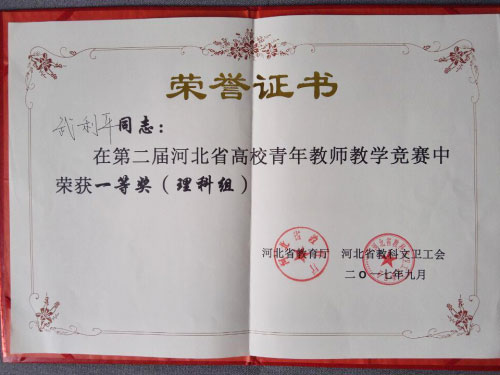 荣誉证书
武利平同志：
在第二届河北省高校青年教师教学竞赛中
荣获一等奖（理科组）
河北省教育厅 河北省教科文卫工会
二〇一七年九月
河北省教育厅